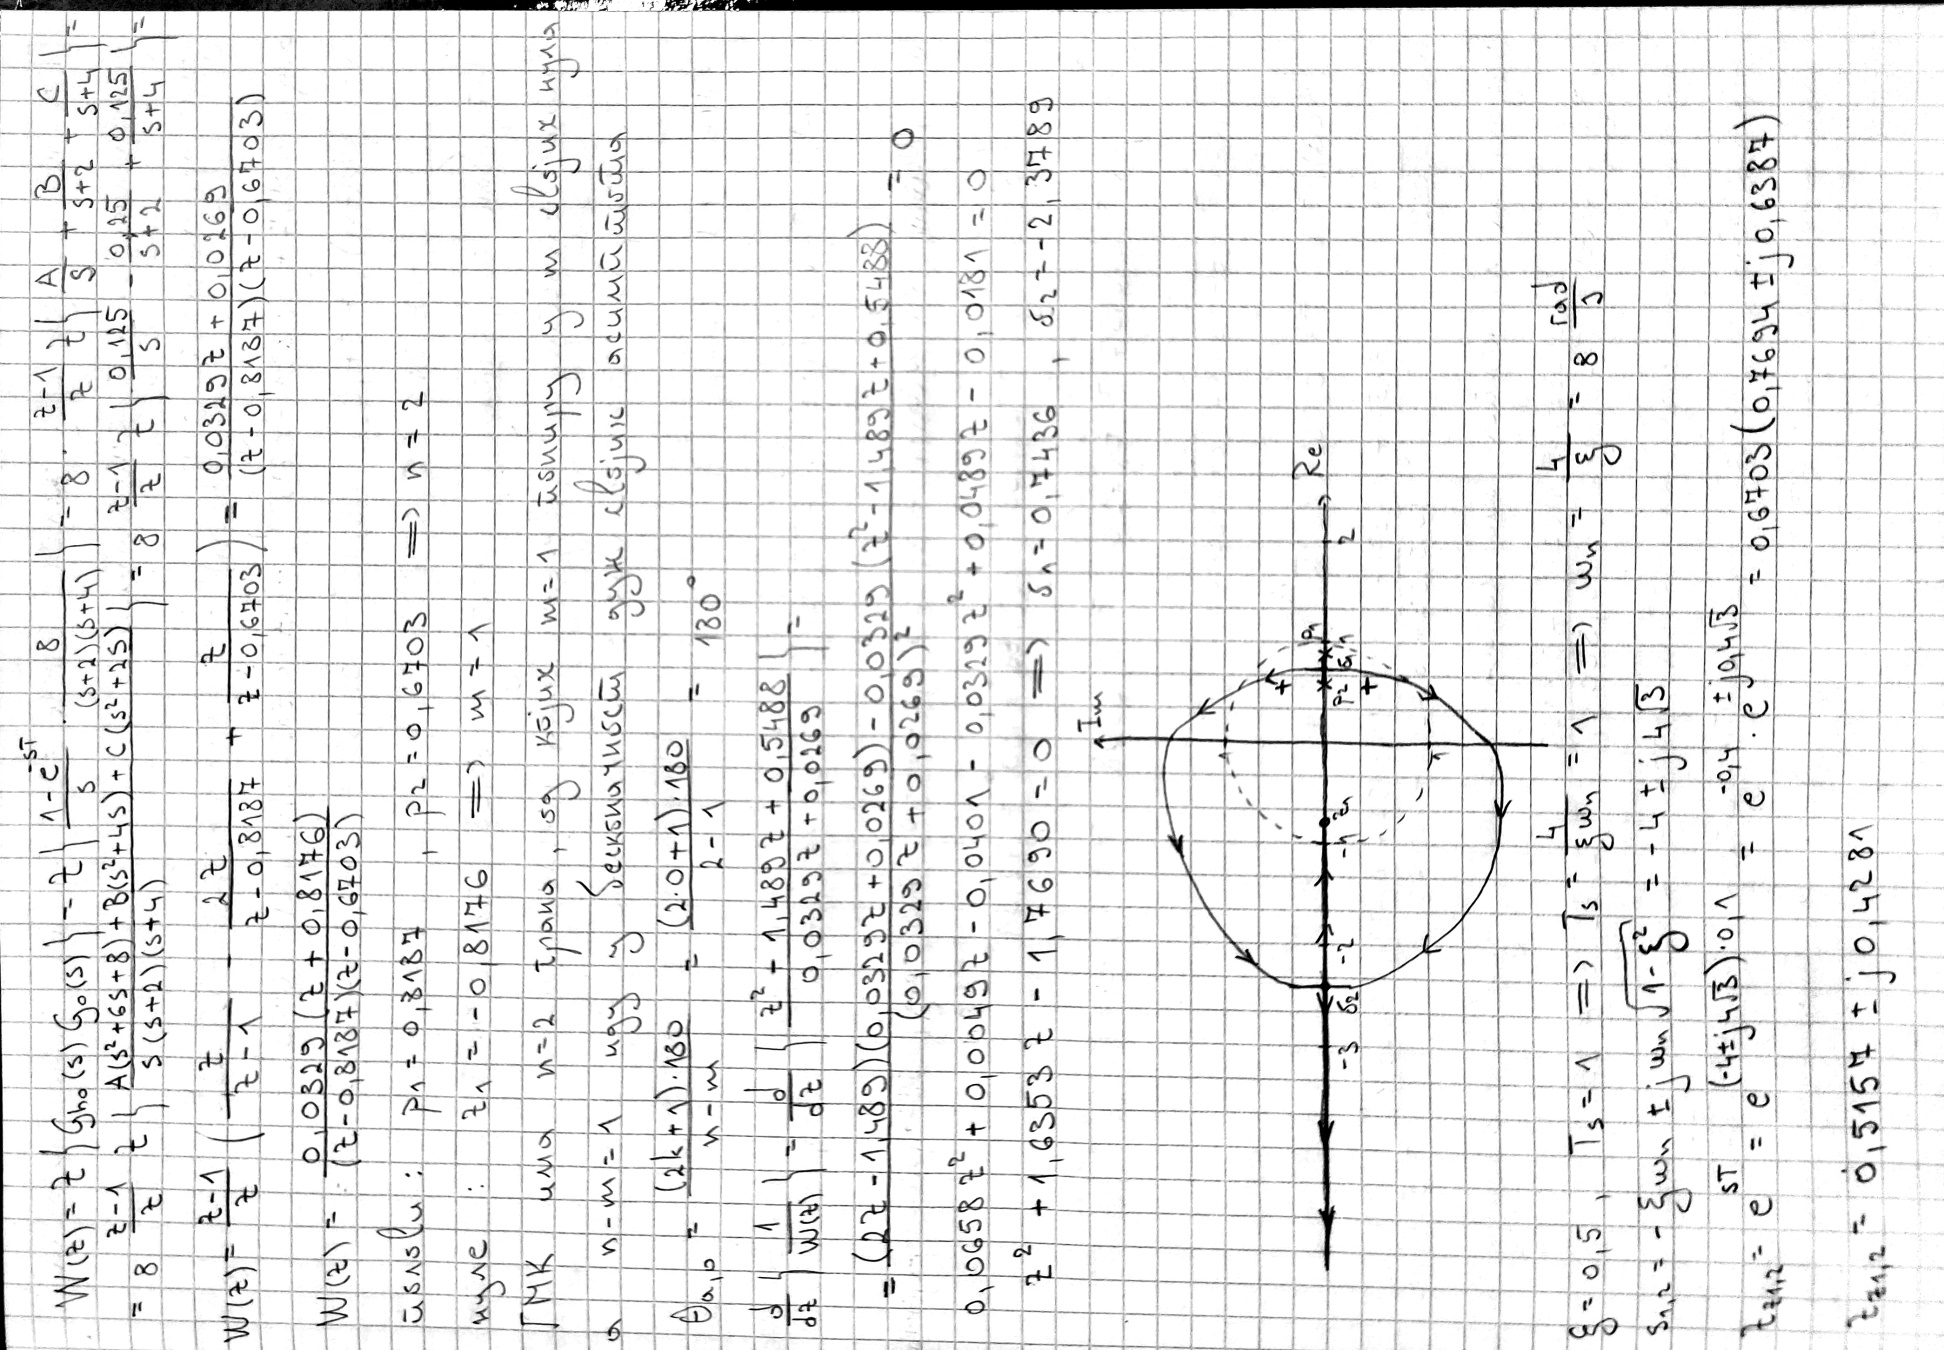 W(z) = Z{Gho(s) Go(s)} = Z{ (1-e^-sT)/s · 8/((s+2)(s+4)) } = 8 (z-1)/z Z{ A/s + B/(s+2) + C/(s+4) } =
= 8 (z-1)/z Z{ (A(s²+6s+8)+B(s²+4s)+C(s²+2s))/(s(s+2)(s+4)) } = 8 (z-1)/z Z{ 0,125/s - 0,25/(s+2) + 0,125/(s+4) } =
W(z) = (z-1)/z ( z/(z-1) - 2z/(z-0,8187) + z/(z-0,6703) ) = (0,0329z + 0,0269)/((z-0,8187)(z-0,6703))
W(z) = 0,0329(z+0,8176)/((z-0,8187)(z-0,6703))
полови: p1 = 0,8187, p2 = 0,6703 => n = 2
нуле : z1 = -0,8176 => m = 1
ГМК има n=2 грана, од којих m=1 пониру у m својих нула
а n-m=1 иду у бесконачност дуж својих асимптота
θa,0 = (2k+1)·180/(n-m) = (2·0+1)·180/(2-1) = 180°
d/dz { 1/W(z) } = d/dz { (z² + 1,489z + 0,5488)/(0,0329z+0,0269) } =
= ((2z-1,489)(0,0329z+0,0269) - 0,0329(z²-1,489z+0,5488))/(0,0329z+0,0269)² = 0
0,0658z² + 0,0049z - 0,0401 - 0,0329z² + 0,0489z - 0,0181 = 0
z² + 1,6353z - 1,7690 = 0 => δ1 = 0,7436, δ2 = -2,3789
Im
Re
-3 δ2 -2 -1 z1 p2 δ1 1 p1 2
1
ξ = 0,5, Ts = 1 => Ts = 4/(ξωn) = 1 => ωn = 4/ξ = 8 rad/s
s1,2 = -ξωn ± jωn√(1-ξ²) = -4 ± j4√3
zz1,2 = e^sT = e^(-4±j4√3)·0,1 = e^-0,4 · e^±j0,4√3 = 0,6703(0,7694 ± j0,6387)
zz1,2 = 0,5157 ± j0,4281